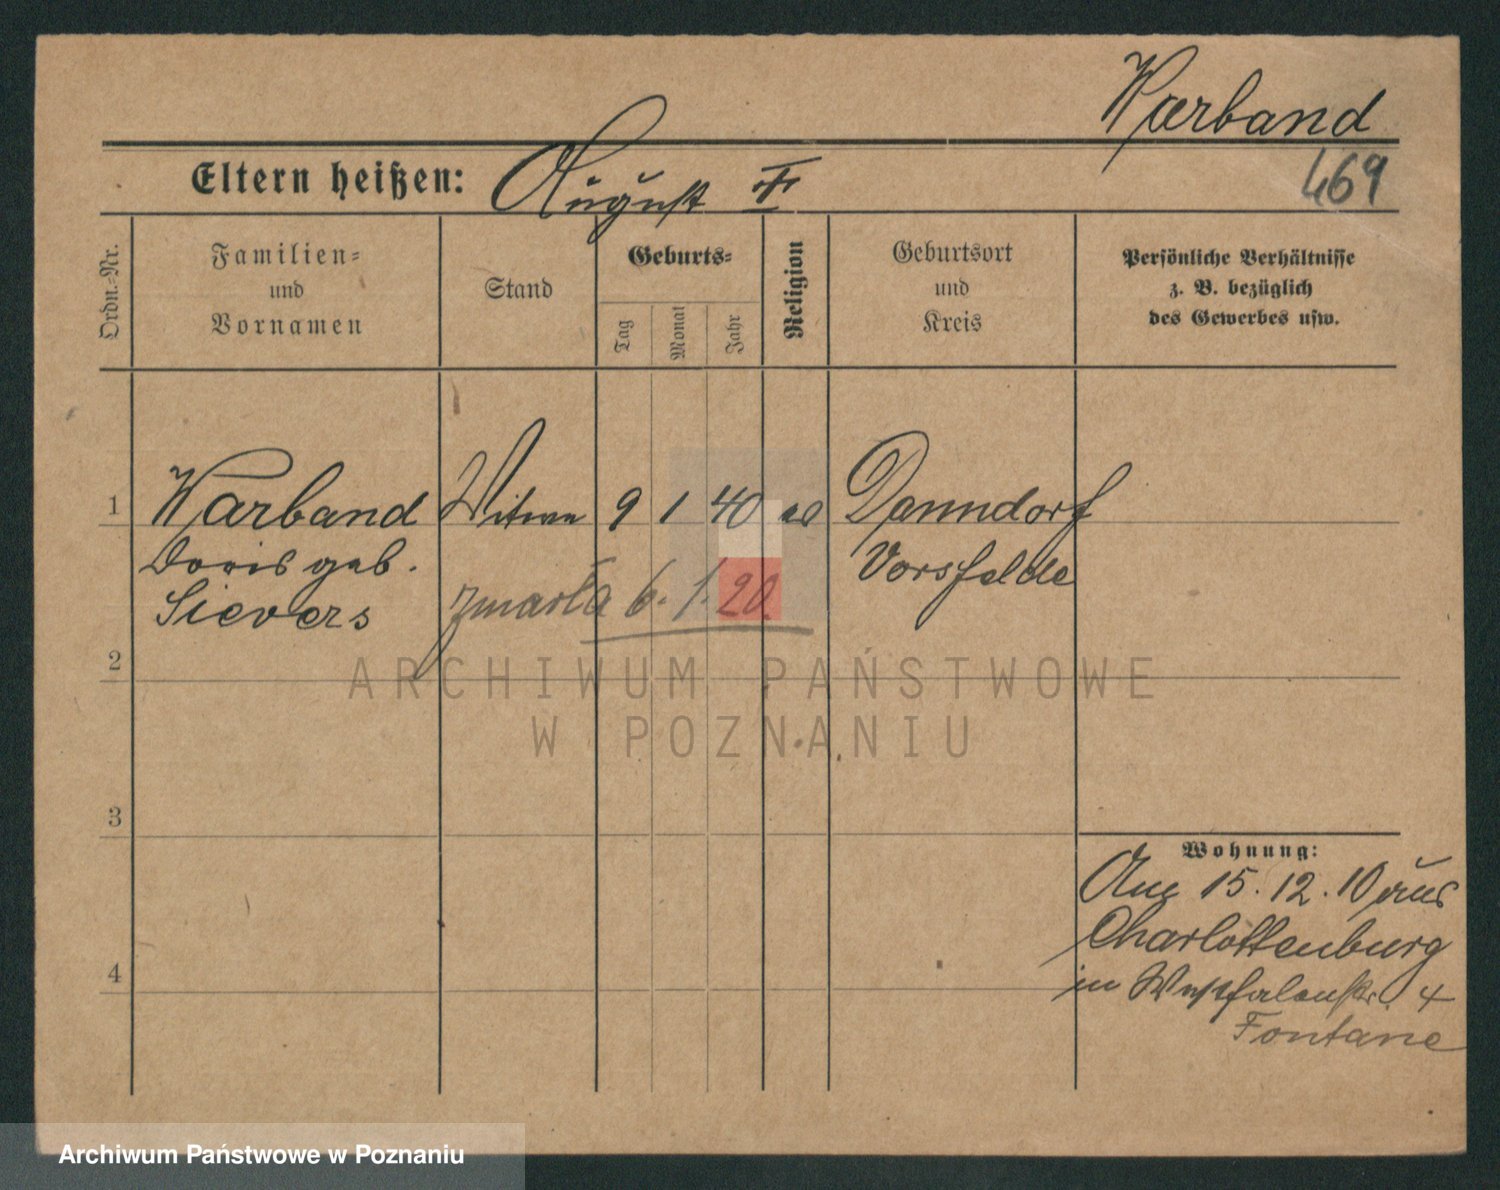 Warband
469
Eltern heißen: August
Ordn.-Nr.
Familien-
und
Vornamen
Stand
Geburts-
Tag
Monat
Jahr
Religion
Geburtsort
und
Kreis
Persönliche Verhältnisse
z. B. bezüglich
des Gewerbes usw.
1
Warband Witwe 9 1 40 Danndorf
Doris geb. Vorsfelde
Sievers zmarła 6. 1. 20.
2
ARCHIWUM PAŃSTWOWE
W POZNANIU
3
Wohnung:
15.12.10 aus
Charlottenburg
in Westfalenstr. 4
4
Fontane
Archiwum Państwowe w Poznaniu